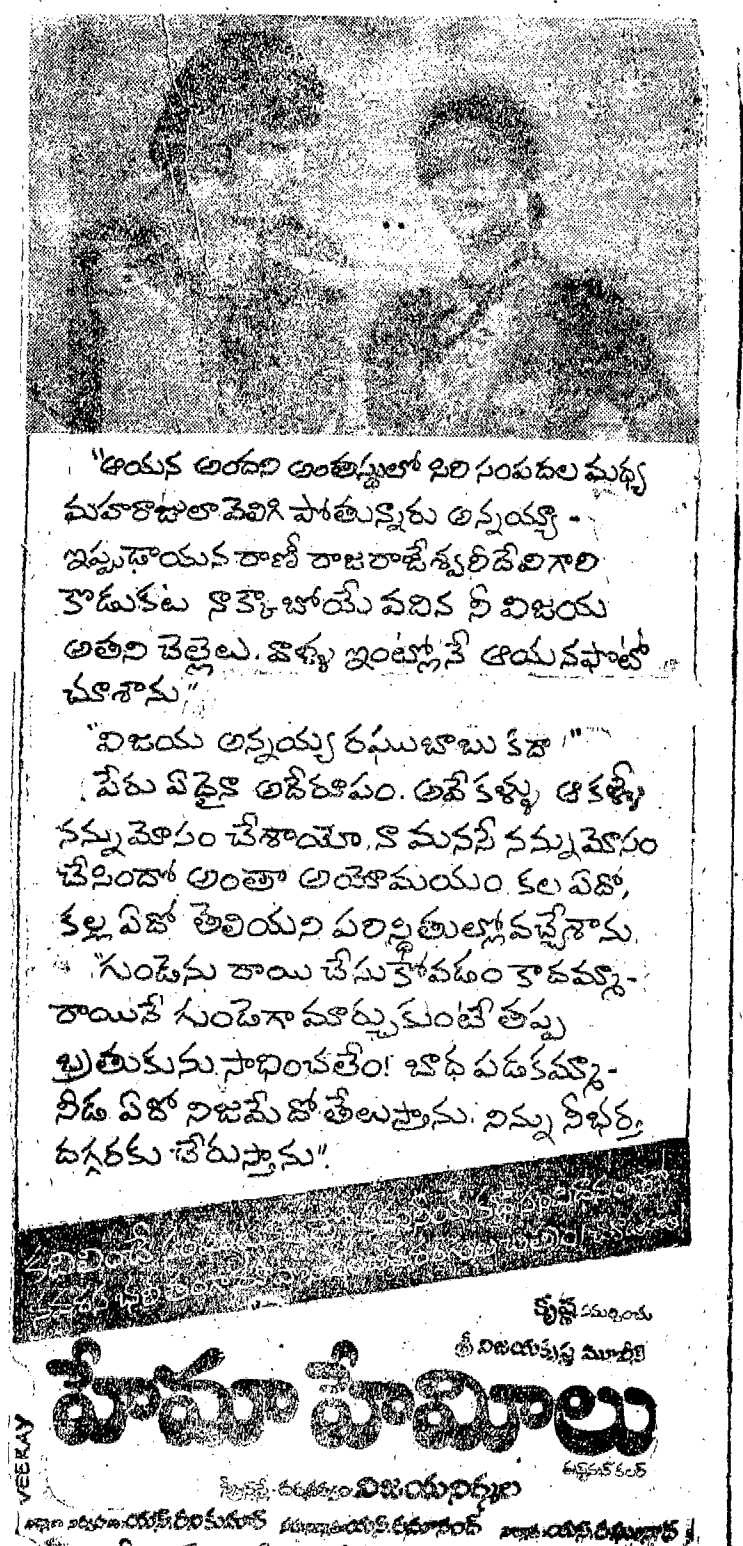 "ఆయన అందని అంతస్థులో సిరి సంపదల మధ్య
మహారాజులా వెలిగి పోతున్నారు అన్నయ్యా -
ఇప్పుడాయన రాణీ రాజరాజేశ్వరీదేవిగారి
కొడుకట నాక్కాబోయే వదిన నీ విజయ
అతని చెల్లెలు. వాళ్ళు ఇంట్లోనే ఆయనఫొటో
చూశాను"
"విజయ అన్నయ్య రఘుబాబు కదా!"
పేరు ఏదైనా అదేరూపం. అవే కళ్ళు ఆ కళ్ళే
నన్నుమోసం చేశాయో, నా మనసే నన్నుమోసం
చేసిందో అంతా అయోమయం. కల ఏదో,
కల్ల ఏదో తెలియని పరిస్థితుల్లోవచ్చేశాను
"గుండెను రాయి చేసుకోవడం కాదమ్మా-
రాయినే గుండెగా మార్చుకుంటే తప్ప
బ్రతుకును సాధించలేం! బాధ పడకమ్మా-
నీడ ఏదో నిజమేదో తేలుస్తాను. నిన్ను నీభర్త
దగ్గరకు చేరుస్తాను".
కృష్ణ సమర్పించు
శ్రీ విజయకృష్ణ మూవీస్
హేమా హేమీలు
ఈస్ట్‌మన్ కలర్
స్క్రీన్‌ప్లే-దర్శకత్వం విజయనిర్మల
యస్.రవికుమార్ యస్.రమానంద్ యస్.రఘునాథ్
VEERAY